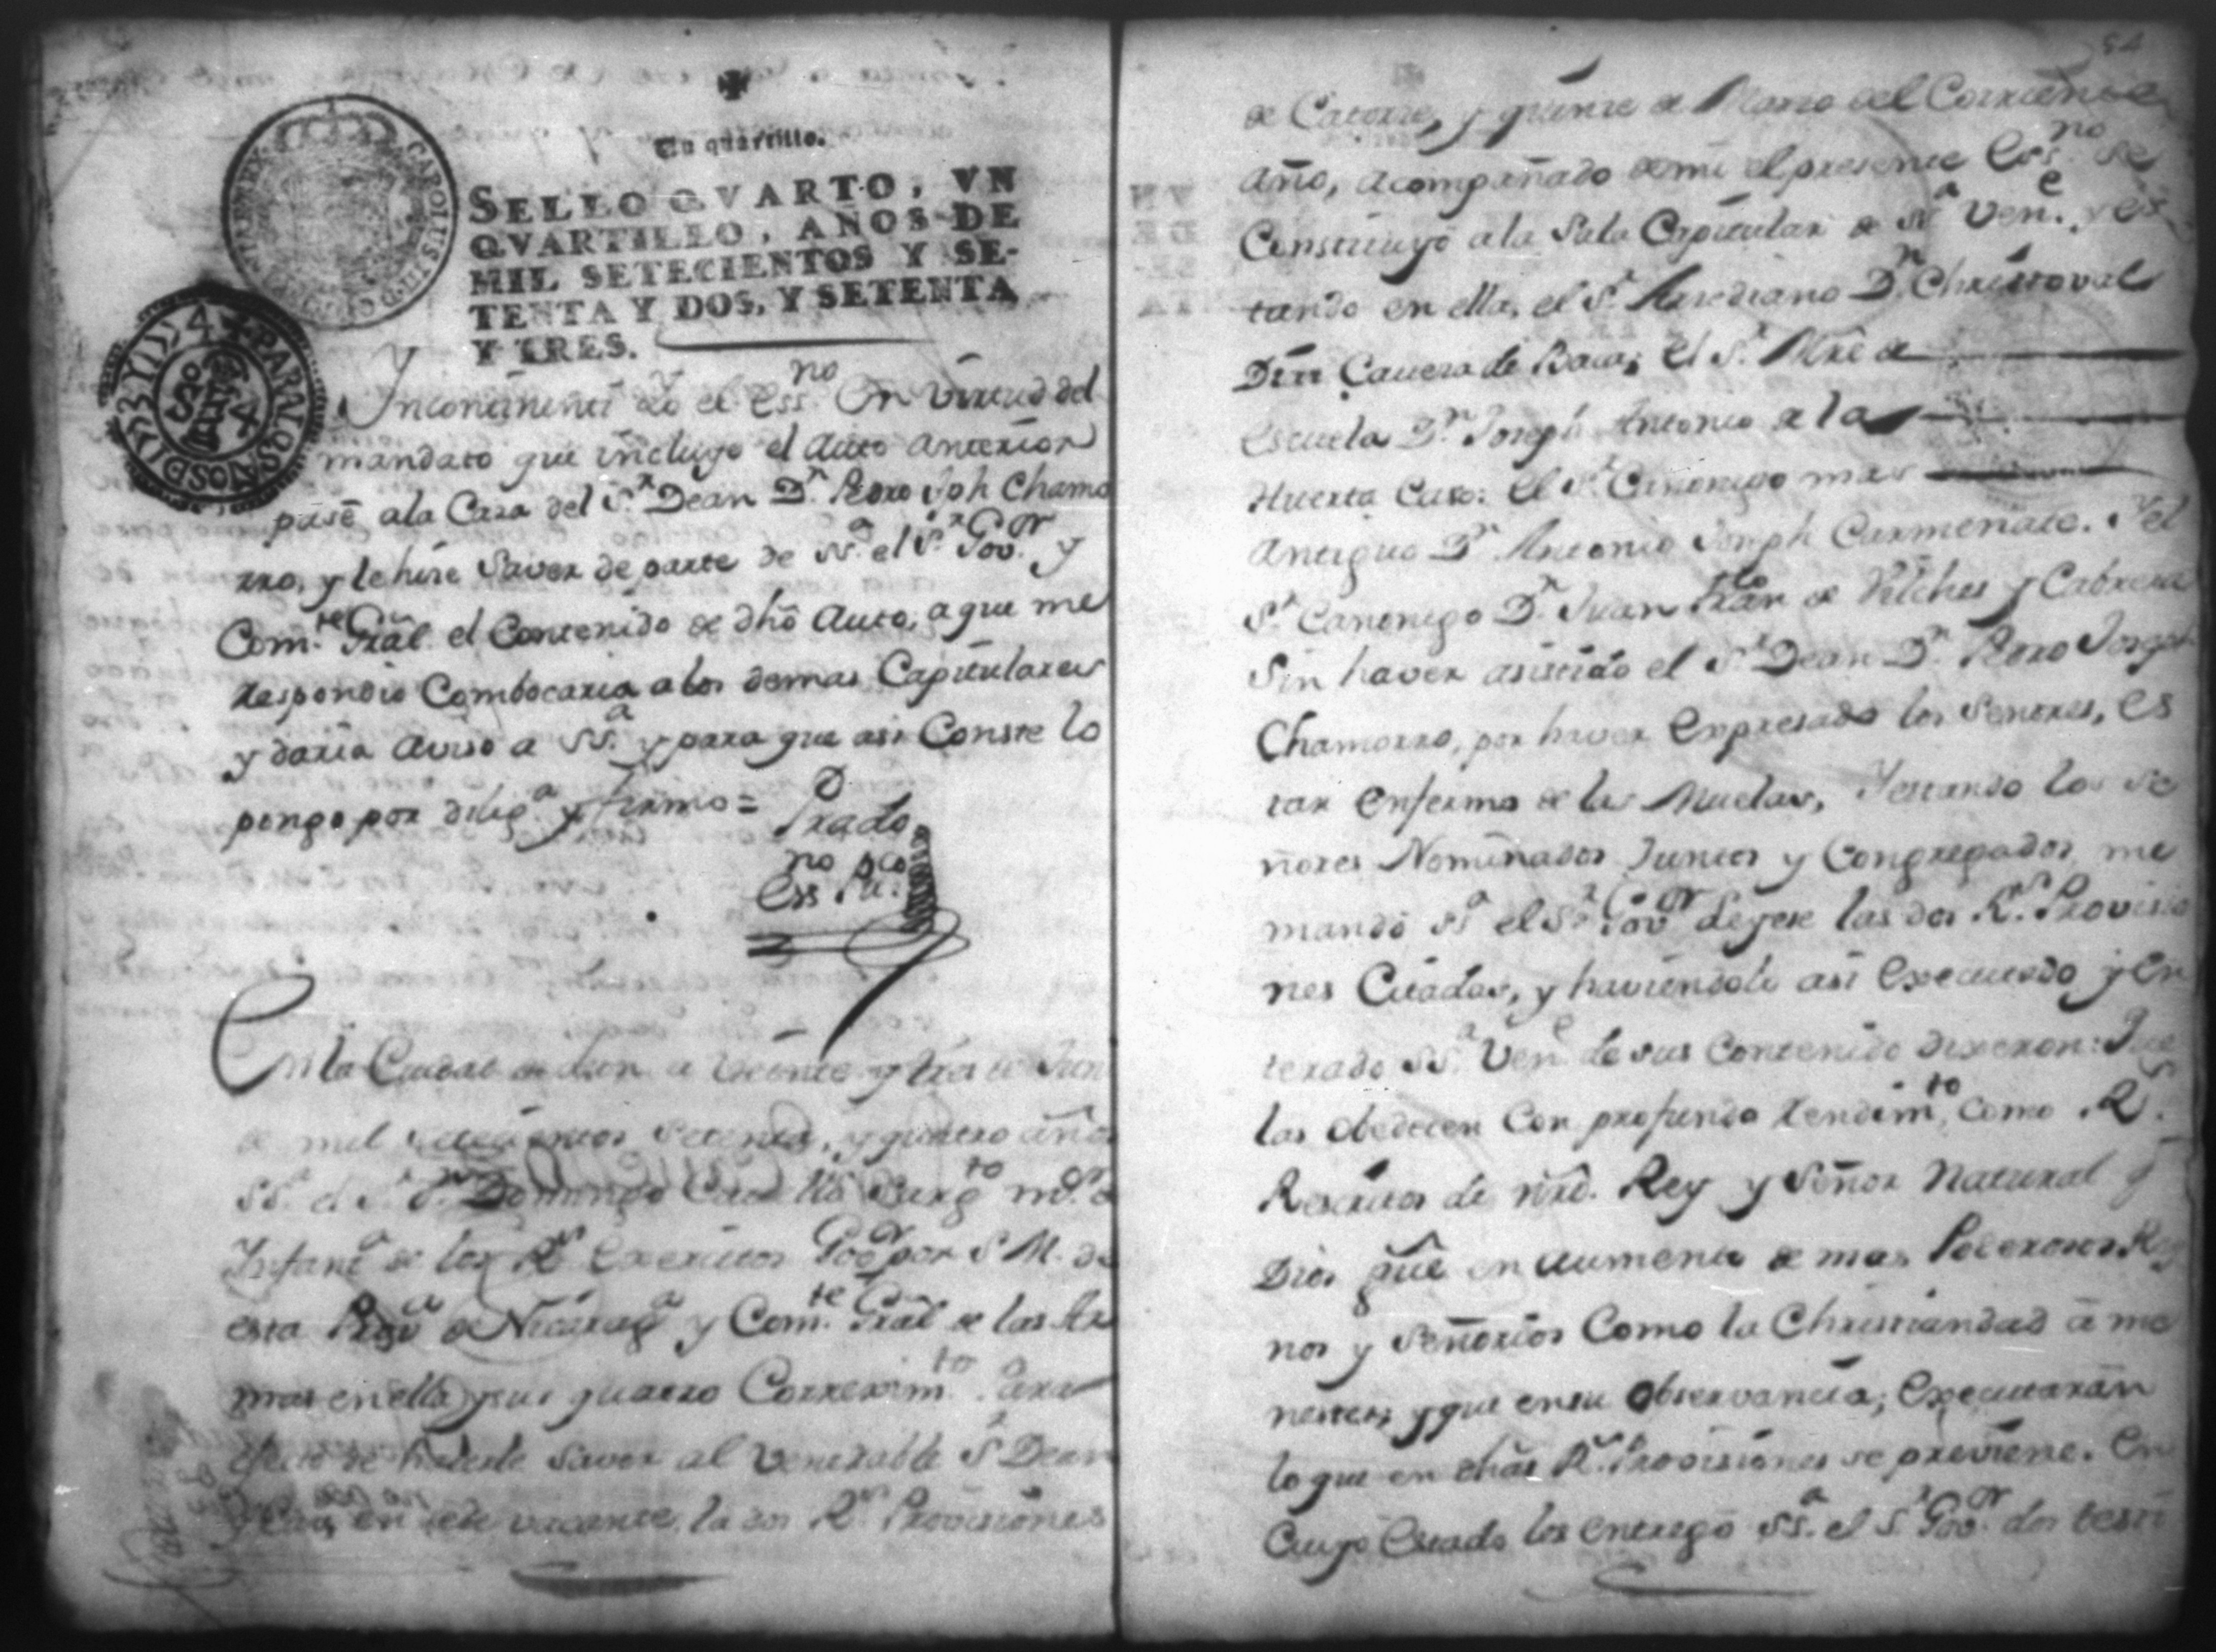 Un quartillo.
SELLO QVARTO, VN
QVARTILLO, AÑOS DE
MIL SETECIENTOS Y SE-
TENTA Y DOS, Y SETENTA
Y TRES.
CAROLUS III
PARA LOS AÑOS DE 1773 Y 1774
Yncontinenti Yo el Essno. En virtud del
mandato que incluye el Auto anterior
pasé, ala Casa del Sr. Dean Dn. Pedro Joh Chamo
rro, y le hise Saver de parte de SSa. el Sr. Govor. y
Comte. Gral. el Contenido de dho Auto, a que me
Respondio Combocaria alos demas Capitulares
y daria aviso a SSa. y para que asi Conste lo
pongo por diliga. y firmo =
Prado
Essno. Puco.
En la Ciudad de Leon a veinte y tres de Jun
de mil setecientos setenta, y quatro años
SSa. el Sr. Dn. Domingo Cavello Sargto. mor. de
Infanta. de los Rs. Exercitos Govor por S M. de
esta Prova de Nicaraga y Comte. Gral de las Ar
mas en ella y sus quatro Correximto. Para
efecto de haserle saver al Venerable Sr. Dean
y Cavo. en sede vacante, las dos Rs. Provisiones
54
de Catorze, y quinze de Marzo del Corriente
año, acompañado de mi el presente Essno. se
Constituyó a la Sala Capitular de SSa. Vene. y es
tando en ella, el Sr. Arsediano Dn. Christoval
Dias Cavesa de Baca; el Sr. Mre de
escuela Dn. Joseph Antonio de la
Huerta Caso: El Sr. Canonigo mas
Antiguo Dn. Antonio Joseph Carmenate. Y el
Sr. Canonigo Dn. Juan de Vilches y Cabrera
Sin haver asistido el Sr. Dean Dn. Pedro Joseph
Chamorro, por haver Expresado los Señores, es
tar enfermo de las Muelas, Y estando los Se
ñores Nominados Juntos y Congregados, me
mandó SSa el Sr. Govor Leyese las dos Rs. Provisio
nes Citadas, y haviendolo asi Executado y En
terado SSa. Vene de sus Contenido dixeron: Que
las obedecen Con profundo Rendimto, Como Rs.
Rescritos de nro. Rey y Señor Natural q
Dios gue en aumento de mas Poderosos Rey
nos y Señorios Como la Christiandad á me
nester, y que en su Observancia, Executarán
lo que en dhas Rs. Provisiones se previene. En
Cuyo Estado les entregó SSa. el Sr. Govor. dos testi